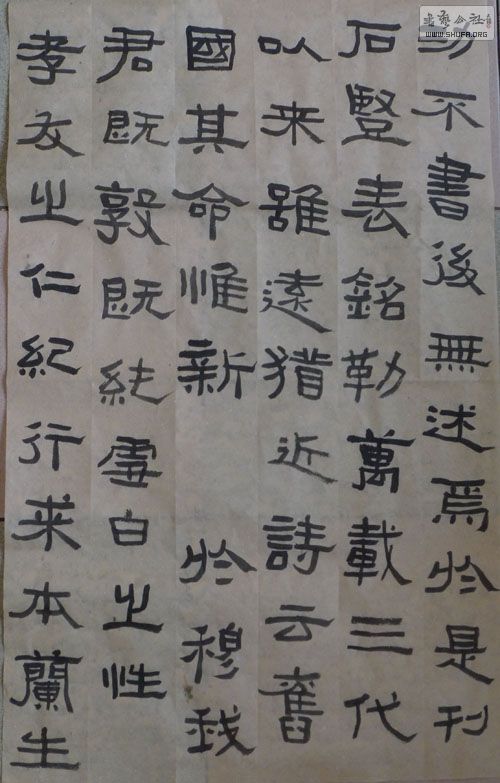 功不書後無述焉於是刊
石豎表銘勒萬載三代
以来雖遠猶近詩云舊
國其命惟新 於穆我
君既敦既純雪白之性
孝友之仁紀行求本蘭生
書藝公社
WWW.SHUFA.ORG